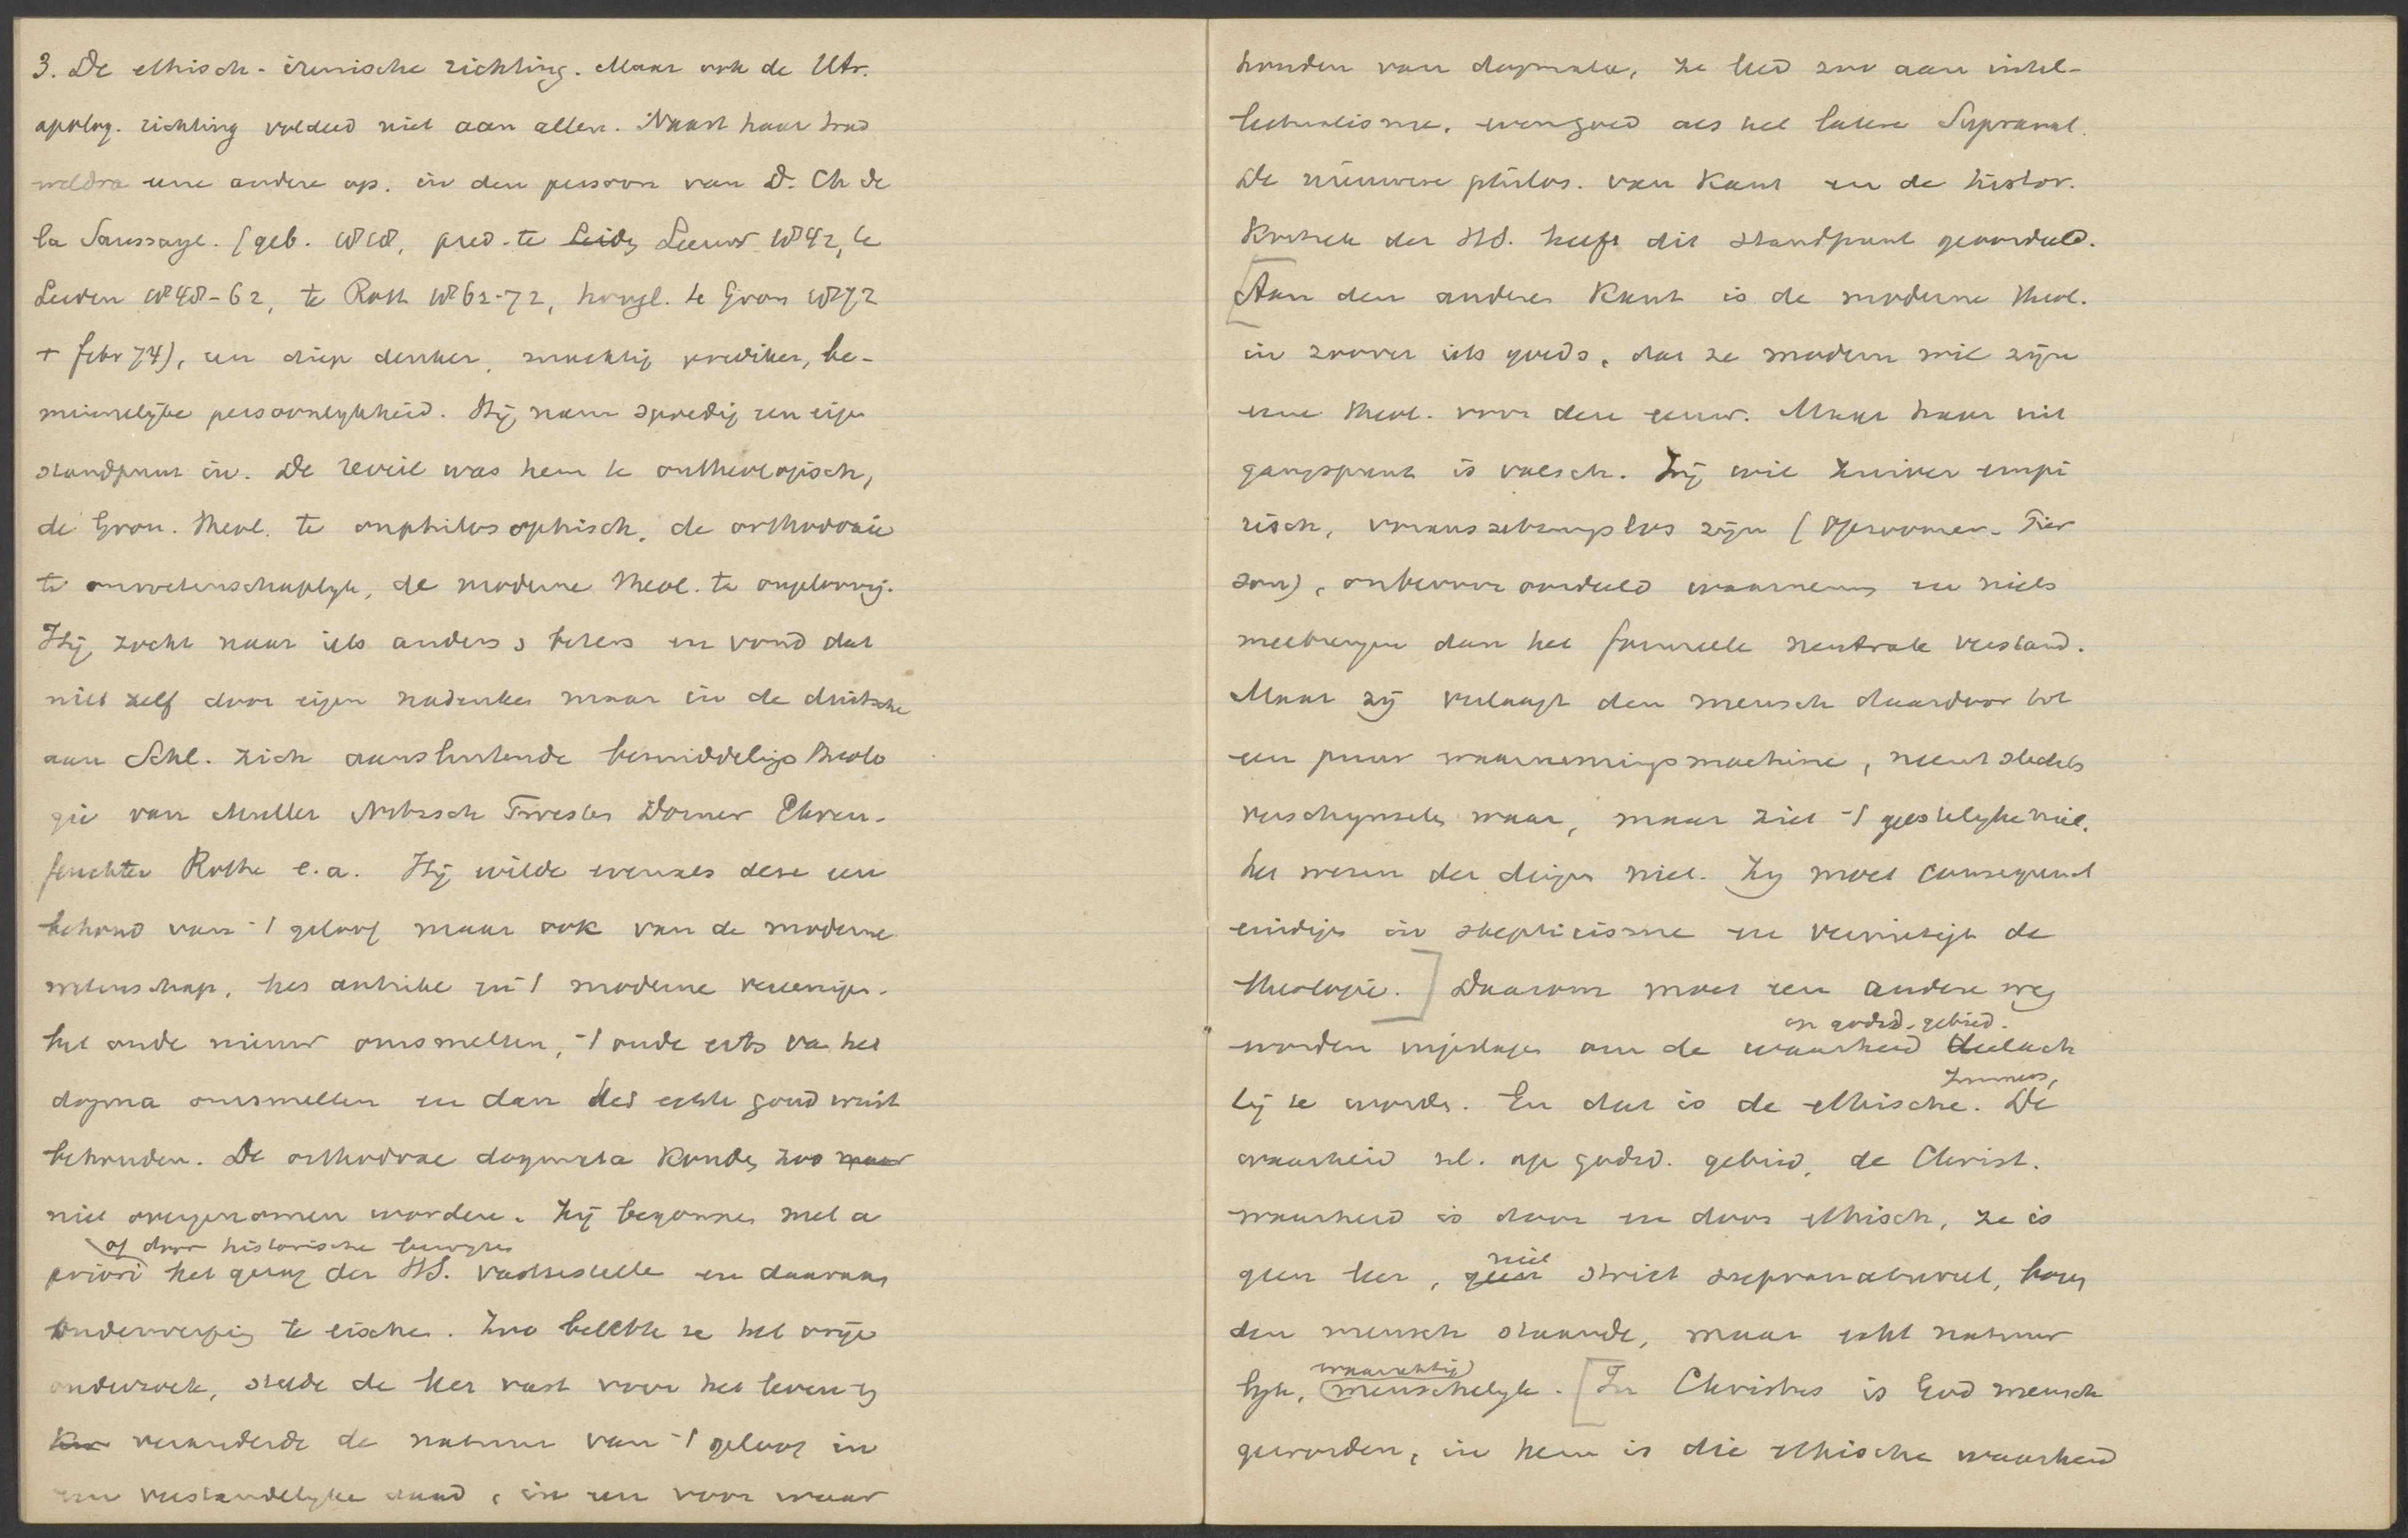 3. De ethisch-irenische richting. Maar ook de Utr.
apolog. richting voldeed niet aan allen. Naast haar trad
weldra eene andere op. in den persoon van D. Ch de
la Saussaye. (geb. 1818, pred. te Leids Leeuw 1842, te
Leiden 1848-62, te Rott 1862-72, hoogl. te Gron 1872
+ febr 74), een diep denker, machtig prediker, be-
minnelijke persoonlykheid. Hij nam spoedig een eigen
standpunt in. De reveil was hem te ontheologisch,
de Gron. theol. te onphilosophisch, de orthodoxie
te onwetenschaplyk, de moderne theol. te ongeloovig.
Hij zocht naar iets anders, beters en vond dat
niet zelf door eigen nadenken maar in de duitsche
aan Schl. zich aansluitende bemiddelings theolo
gie van Muller Nitzsch Twesten Dorner Ehren-
feuchter Rothe e.a. Hij wilde evenals deze een
behoud van 't geloof maar ook van de moderne
wetenschap, het antieke en 't moderne vereenigen.
het oude nieuw omsmelten, 't oude erts van het
dogma omsmelten en dan het echte goud winst
behouden. De orthodoxe dogmata konden zoo maar
niet overgenomen worden. Zij begonnen met a
of door historische bewyzen
priori het gezag der HS. vastestelle en daaraan
onderwerping te eischen. Zoo belette ze het vrije
onderzoek, stelde de leer vast voor het leven en
veranderde de natuur van 't geloof in
een verstandelyke daad, in een voor waar
houden van dogmata, ze leed zoo aan intel-
lectualisme, evengoed als het latere Supranat.
De nieuwere philos. van Kant en de histor.
Kritiek der HS. heeft dit standpunt geoordeeld.
[Aan den anderen Kant is de moderne theol.
in zoover iets goeds, dat ze modern wil zijn
eene theol. voor deze eeuw. Maar haar uit
gangspunt is valsch. Zij wil zuiver empi
risch, voraussetzungslos zijn (Opzoomer. Pier
son), onbevooroordeeld waarnemen en niets
meebrengen dan het formeele neutrale verstand.
Maar zij verlaagt den mensch daardoor tot
een puur waarnemingsmachine, neemt slechts
verschynselen waar, maar ziet 't geestelyke niet,
het wezen der dingen niet. Zy moet consequent
eindigen in skepticisme en vernietigt de
theologie.] Daarom moet een andere weg
op godsd. gebied.
worden ingeslagen om de waarheid deelach
Immers,
tig te worden. En dat is de ethische. De
waarheid nl. op godsd. gebied, de Christ.
waarheid is door en door ethisch, ze is
niet
geen leer, geen strict supranatureel, boven
den mensch staande, maar echt natuur
waarachtig
lyk, menschelyk. [In Christus is God mensch
geworden, in hem is die ethische waarheid